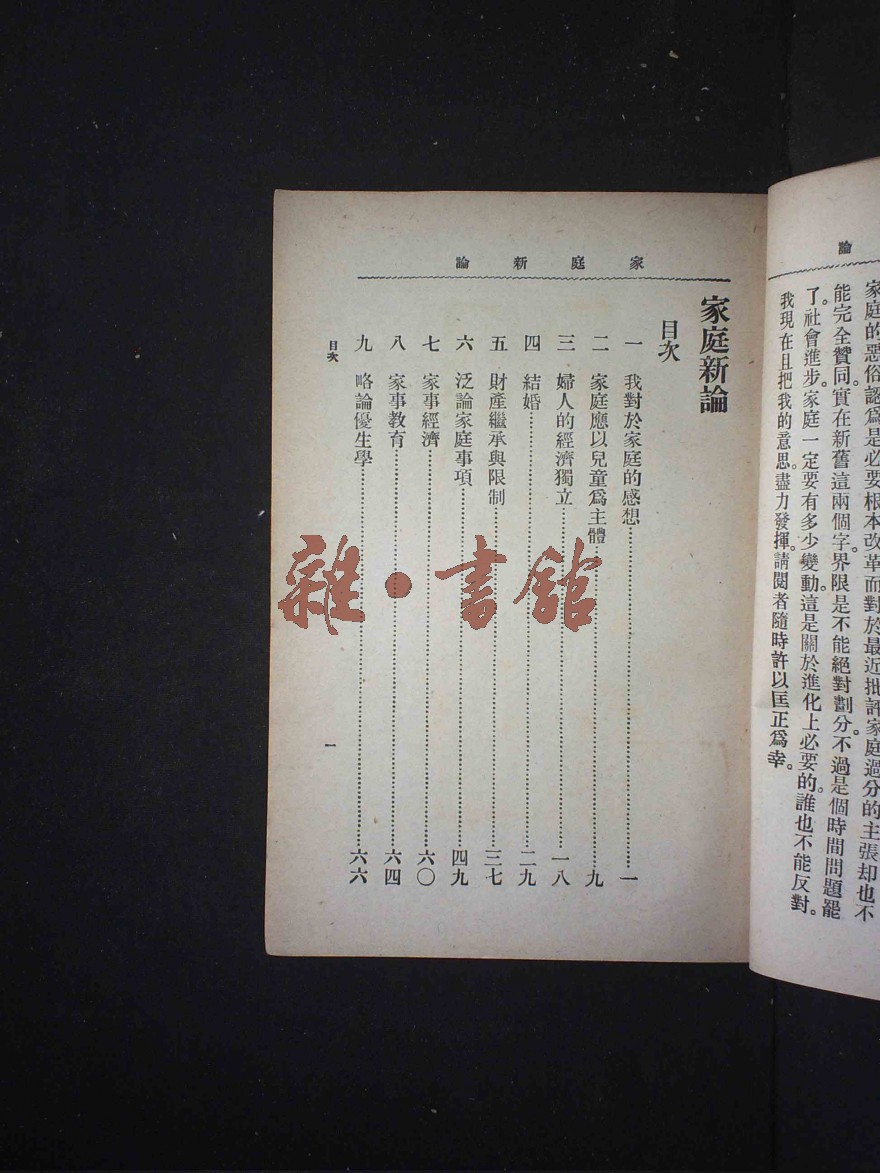 論
家庭的惡俗認爲是必要根本改革而對於最近批評家庭過分的主張却也不
能完全贊同。實在新舊這兩個字界限是不能絕對劃分不過是個時間問題罷
了。社會進步。家庭一定要有多少變動。這是關於進化上必要的。誰也不能反對。
我現在且把我的意思。盡力發揮。請閱者隨時許以匡正爲幸。
家庭新論
家庭新論
目次
一 我對於家庭的感想……一
二 家庭應以兒童爲主體……九
三 婦人的經濟獨立……一八
四 結婚……二九
五 財產繼承與限制……三七
六 泛論家庭事項……四九
七 家事經濟……六〇
八 家事教育……六四
九 略論優生學……六六
目次
一
雜·書館